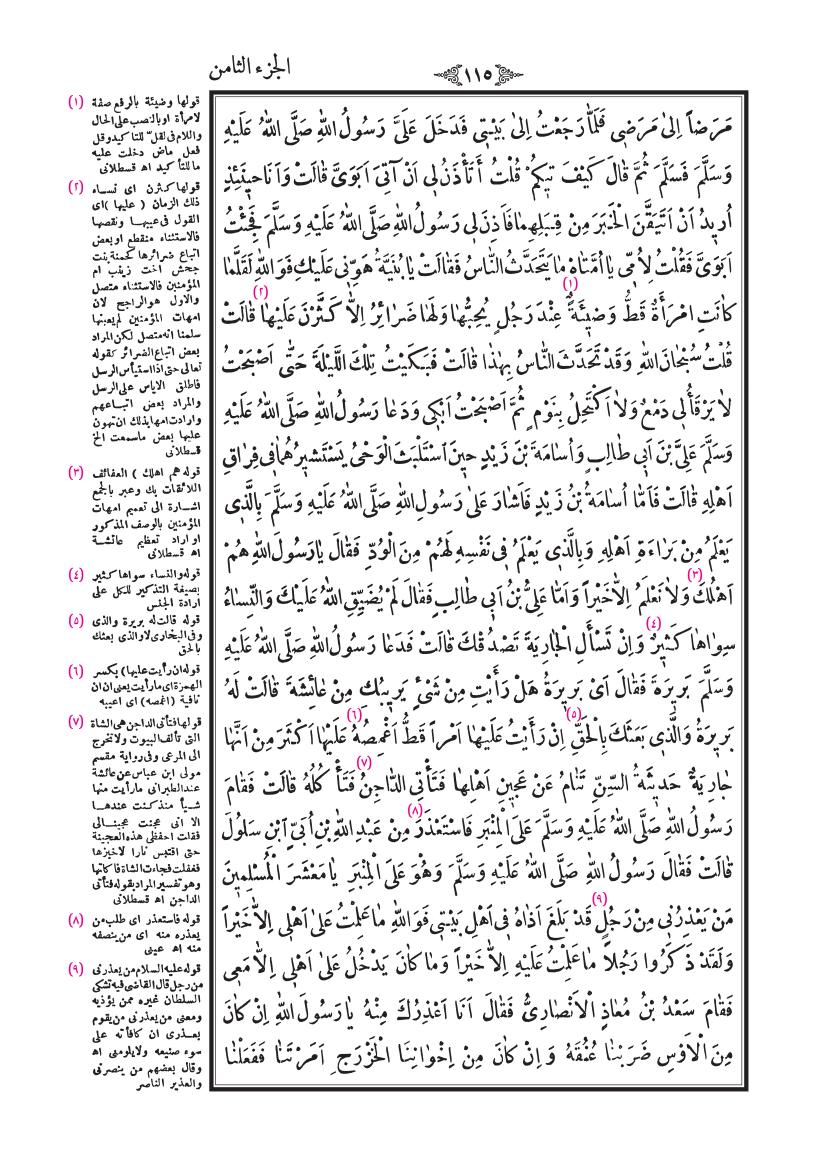 ١١٥
الجزء الثامن
مَرَضاً اِلىٰ مَرَضِى فَلَمَّا رَجَعْتُ اِلىٰ بَيْتِى فَدَخَلَ عَلَىَّ رَسُولُ اللهِ صَلَّى اللهُ عَلَيْهِ
وَسَلَّمَ فَسَلَّمَ ثُمَّ قَالَ كَيْفَ تِيكُمْ قُلْتُ أَتَأْذَنُ لِى اَنْ آتِىَ اَبَوَىَّ قَالَتْ وَاَنَا حِينَئِذٍ
اُرِيدُ اَنْ اَتَيَقَّنَ الْخَبَرَ مِنْ قِبَلِهِمَا فَاَذِنَ لِى رَسُولُ اللهِ صَلَّى اللهُ عَلَيْهِ وَسَلَّمَ فَجِئْتُ
اَبَوَىَّ فَقُلْتُ لِاُمِّى يَا اُمَّتَاهْ مَا يَتَحَدَّثُ النَّاسُ فَقَالَتْ يَا بُنَيَّةُ هَوِّنِى عَلَيْكِ فَوَ اللهِ لَقَلَّمَا
كَانَتِ امْرَأَةٌ قَطُّ وَضِيئَةٌ (١) عِنْدَ رَجُلٍ يُحِبُّهَا وَلَهَا ضَرَائِرُ اِلاَّ كَثَّرْنَ عَلَيْهَا (٢) قَالَتْ
قُلْتُ سُبْحَانَ اللهِ وَقَدْ تَحَدَّثَ النَّاسُ بِهٰذَا قَالَتْ فَبَكَيْتُ تِلْكَ اللَّيْلَةَ حَتّٰى اَصْبَحْتُ
لاَ يَرْقَأُ لِى دَمْعٌ وَلاَ اَكْتَحِلُ بِنَوْمٍ ثُمَّ اَصْبَحْتُ اَبْكِى وَدَعَا رَسُولُ اللهِ صَلَّى اللهُ عَلَيْهِ
وَسَلَّمَ عَلِىَّ بْنَ اَبِى طَالِبٍ وَاُسَامَةَ بْنَ زَيْدٍ حِينَ اسْتَلْبَثَ الْوَحْىُ يَسْتَشِيرُهُمَا فِى فِرَاقِ
اَهْلِهِ قَالَتْ فَاَمَّا اُسَامَةُ بْنُ زَيْدٍ فَاَشَارَ عَلىٰ رَسُولِ اللهِ صَلَّى اللهُ عَلَيْهِ وَسَلَّمَ بِالَّذِى
يَعْلَمُ مِنْ بَرَاءَةِ اَهْلِهِ وَبِالَّذِى يَعْلَمُ فِى نَفْسِهِ لَهُمْ مِنَ الْوُدِّ فَقَالَ يَا رَسُولَ اللهِ هُمْ
اَهْلُكَ (٣) وَلاَ نَعْلَمُ اِلاَّ خَيْراً وَاَمَّا عَلِىُّ بْنُ اَبِى طَالِبٍ فَقَالَ لَمْ يُضَيِّقِ اللهُ عَلَيْكَ وَالنِّسَاءُ
سِوَاهَا كَثِيرٌ (٤) وَاِنْ تَسْأَلِ الْجَارِيَةَ تَصْدُقْكَ قَالَتْ فَدَعَا رَسُولُ اللهِ صَلَّى اللهُ عَلَيْهِ
وَسَلَّمَ بَرِيرَةَ فَقَالَ اَىْ بَرِيرَةُ هَلْ رَأَيْتِ مِنْ شَىْءٍ يَرِيبُكِ مِنْ عَائِشَةَ قَالَتْ لَهُ
بَرِيرَةُ وَالَّذِى بَعَثَكَ بِالْحَقِّ (٥) اِنْ رَأَيْتُ عَلَيْهَا اَمْراً قَطُّ اَغْمِصُهُ (٦) عَلَيْهَا اَكْثَرَ مِنْ اَنَّهَا
جَارِيَةٌ حَدِيثَةُ السِّنِّ تَنَامُ عَنْ عَجِينِ اَهْلِهَا فَتَأْتِى الدَّاجِنُ (٧) فَتَأْكُلُهُ قَالَتْ فَقَامَ
رَسُولُ اللهِ صَلَّى اللهُ عَلَيْهِ وَسَلَّمَ عَلَى الْمِنْبَرِ فَاسْتَعْذَرَ (٨) مِنْ عَبْدِ اللهِ بْنِ اُبَىٍّ ابْنِ سَلُولَ
قَالَتْ فَقَالَ رَسُولُ اللهِ صَلَّى اللهُ عَلَيْهِ وَسَلَّمَ وَهُوَ عَلَى الْمِنْبَرِ يَا مَعْشَرَ الْمُسْلِمِينَ
مَنْ يَعْذِرُنِى مِنْ رَجُلٍ (٩) قَدْ بَلَغَ اَذَاهُ فِى اَهْلِ بَيْتِى فَوَ اللهِ مَا عَلِمْتُ عَلىٰ اَهْلِى اِلاَّ خَيْراً
وَلَقَدْ ذَكَرُوا رَجُلاً مَا عَلِمْتُ عَلَيْهِ اِلاَّ خَيْراً وَمَا كَانَ يَدْخُلُ عَلىٰ اَهْلِى اِلاَّ مَعِى
فَقَامَ سَعْدُ بْنُ مُعَاذٍ الْاَنْصَارِىُّ فَقَالَ اَنَا اَعْذِرُكَ مِنْهُ يَا رَسُولَ اللهِ اِنْ كَانَ
مِنَ الْاَوْسِ ضَرَبْنَا عُنُقَهُ وَاِنْ كَانَ مِنْ اِخْوَانِنَا الْخَزْرَجِ اَمَرْتَنَا فَفَعَلْنَا
(١) قولها وضيئة بالرفع صفة
لامرأة او بالنصب على الحال
واللام فى لقلّ للتاكيد وقل
فعل ماض دخلت عليه
ما للتأكيد اه قسطلانى
(٢) قولها كثرن اى نساء
ذلك الزمان ( عليها ) اى
القول فى عيبها ونقصها
فالاستثناء منقطع او بعض
اتباع ضرائرها كحمنة بنت
جحش اخت زينب ام
المؤمنين فالاستثناء متصل
والاول هو الراجح لان
امهات المؤمنين لم يعبنها
سلمنا انه متصل لكن المراد
بعض اتباع الضرائر كقوله
تعالى حتى اذا استيأس الرسل
فاطلق الاياس على الرسل
والمراد بعض اتباعهم
وارادت امها بذلك ان تهون
عليها بعض ما سمعت الخ
قسطلانى
(٣) قوله هم اهلك ) العفائف
اللائقات بك وعبر بالجمع
اشارة الى تعميم امهات
المؤمنين بالوصف المذكور
او اراد تعظيم عائشة
اه قسطلانى
(٤) قوله والنساء سواها كثير
بصيغة التذكير للكل على
ارادة الجنس
(٥) قوله قالت له بريرة والذى
وفى البخارى لا والذى بعثك
بالحق
(٦) قوله ان رأيت عليها ) بكسر
الهمزة اى ما رأيت يعنى ان ان
نافية ( اغمصه ) اى اعيبه
(٧) قولها فتأتى الداجن هى الشاة
التى تألف البيوت ولا تخرج
الى المرعى وفى رواية مقسم
مولى ابن عباس عن عائشة
عند الطبرانى ما رأيت منها
شيأ منذ كنت عندها
الا انى عجنت عجينا لى
فقلت احفظى هذه العجينة
حتى اقتبس نارا لاخبزها
فغفلت فجاءت الشاة فاكلتها
وهو تفسير المراد بقوله فتأتى
الداجن اه قسطلانى
(٨) قوله فاستعذر اى طلب من
يعذره منه اى من ينصفه
منه اه عينى
(٩) قوله عليه السلام من يعذرنى
من رجل قال القاضى فيه تشكى
السلطان غيره ممن يؤذيه
ومعنى من يعذرنى من يقوم
بعذرى ان كافأته على
سوء صنيعه ولا يلومنى اه
وقال بعضهم من ينصرنى
والعذير الناصر